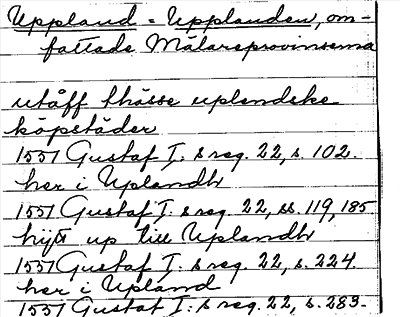 Uppland = Upplanden, om-
fattade Mälareprovinserna
utåff thässe uplendske
köpstäder
1551 Gustaf I: s reg. 22, s. 102.
her i Uplandh
1551 Gustaf I: s reg. 22, ss. 119, 185
hijt up till Uplandh
1551 Gustaf I: s reg. 22, s. 224.
her i Upland
1551 Gustaf I: s reg. 22, s. 283.